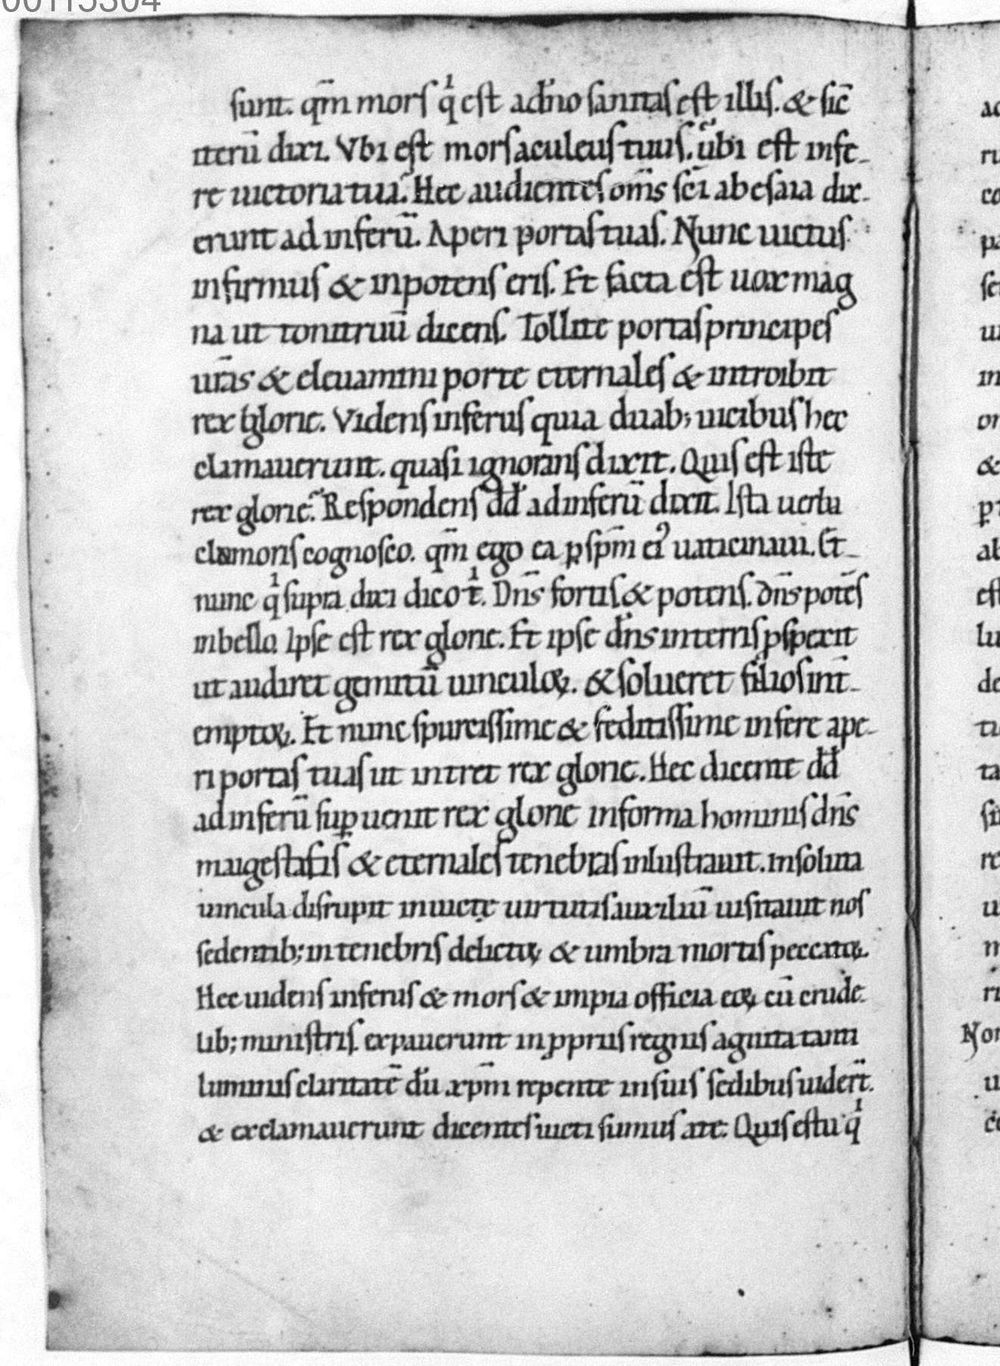 00115304
sunt. qm̄ mors qͥ est a dn̄o sanitas est illis. & sic̄
iterū dixi. Vbi est mors aculeus tuus. ubi est infe-
re uictoria tua. Hec audientes om̄s sc̄i ab esaia dix-
erunt ad inferū. Aperi portas tuas. Nunc uictus
infirmus & inpotens eris. Et facta est uox mag
na ut tonitruū dicens. Tollite portas principes
urās & eleuamini porte eternales & introibit
rex glorie. Videns inferus quia duab; uicibus hec
clamauerunt. quasi ignorans dixit. Quis est iste
rex glorie. Respondens dd̄ ad inferū dixit. Ista uerba
clamoris cognosco. qm̄ ego ea ꝑ sp̄m eiꝰ uaticinaui. Et
nunc qͥ supra dixi dico tͥ. Dn̄s fortis & potens. dn̄s potēs
in bello. Ipse est rex glorie. Et ipse dn̄s in terris ꝓspexit
ut audiret gemitū uinculoꝝ. & solueret filios int̄-
emptoꝝ. Et nunc spurcissime & feditissime infere ape-
ri portas tuas ut intret rex glorie. Hec dicente dd̄
ad inferū suꝑuenit rex glorie in forma hominis dn̄s
maigestatis & eternales tenebras inlustrauit. insoluta
uincula disrupit inuicte uirtutis auxiliū uisitauit nos
sedentib; in tenebris delictoꝝ & umbra mortis peccatoꝝ.
Hec uidens inferus & mors & impia officia eoꝝ cū crude-
lib; ministris. expauerunt in ꝓpriis regnis agnita tanti
luminis claritatē dū xp̄m repente in suis sedibus uider̄t.
& exclamauerunt dicentes uicti sumus a te. Quis es tu qͥ